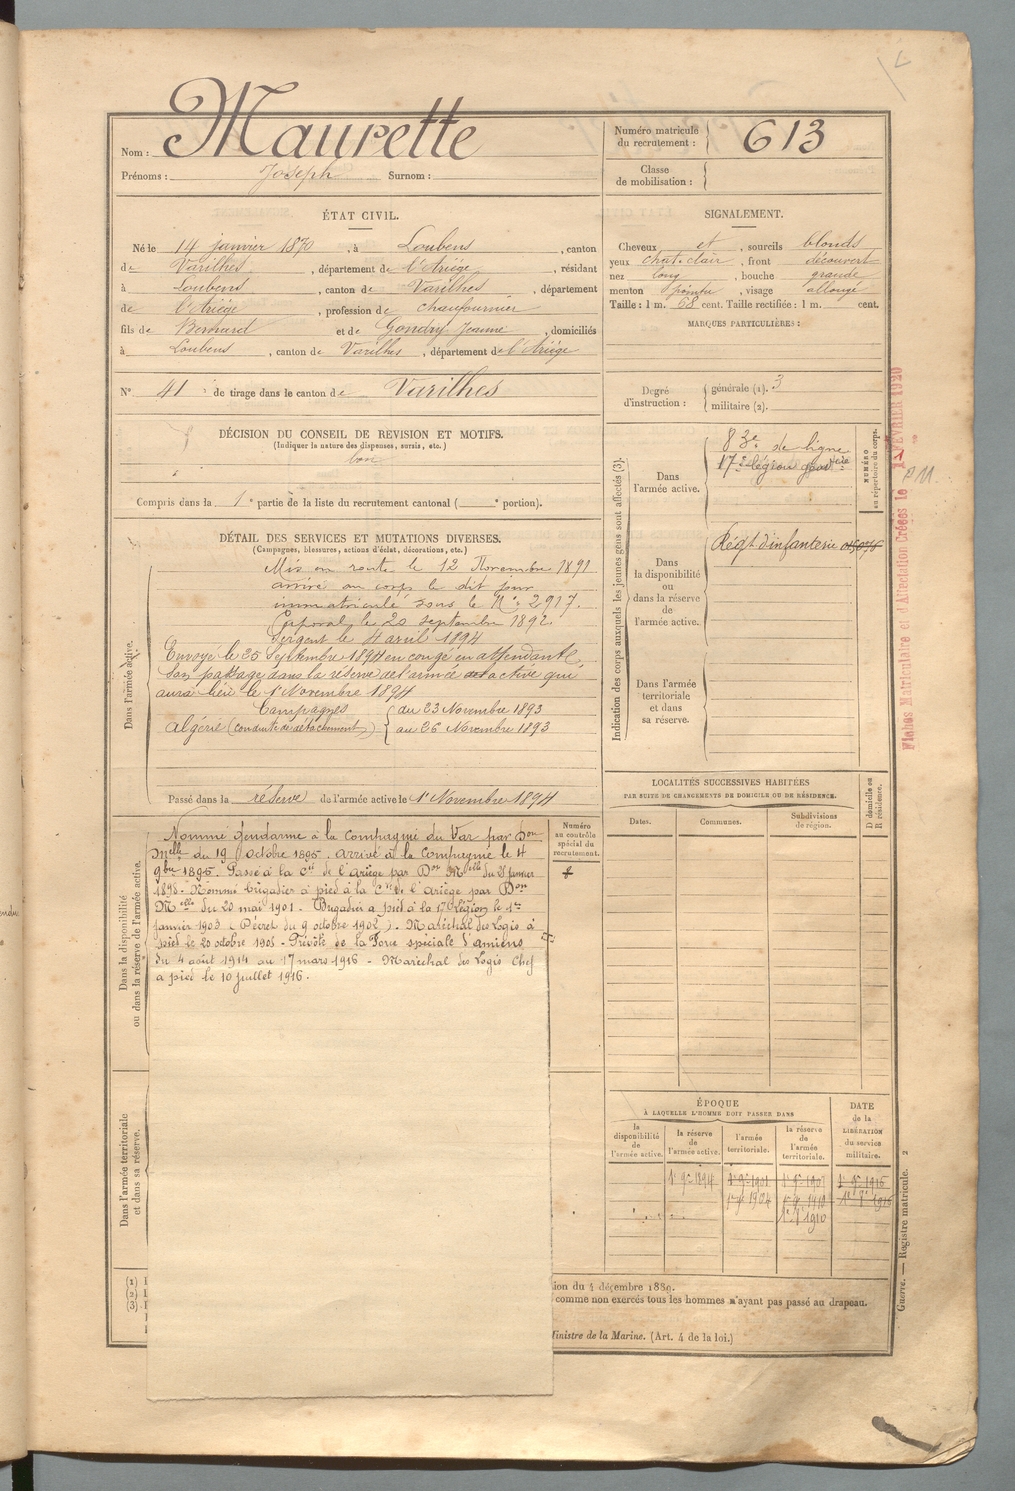 Nom : Maurette
Prénoms : Joseph Surnom :
Numéro matricule
du recrutement : 613
Classe
de mobilisation :
ÉTAT CIVIL.
Né le 14 janvier 1870, à Loubens, canton
de Varilhes, département de l'Ariège, résidant
à Loubens, canton de Varilhes, département
de l'Ariège, profession de chaufournier
fils de Bernard et de Gondry Jeanne, domiciliés
à Loubens, canton de Varilhes, département de l'Ariège
N° 41 de tirage dans le canton de Varilhes
SIGNALEMENT.
Cheveux et, sourcils blonds
yeux chat. clair, front découvert
nez long, bouche grande
menton pointu, visage allongé
Taille : 1 m. 68 cent. Taille rectifiée : 1 m. cent.
MARQUES PARTICULIÈRES :
Degré
d'instruction :
générale (1). 3
militaire (2).
DÉCISION DU CONSEIL DE REVISION ET MOTIFS.
(Indiquer la nature des dispenses, sursis, etc.)
bon
Compris dans la 1e partie de la liste du recrutement cantonal ( e portion).
DÉTAIL DES SERVICES ET MUTATIONS DIVERSES.
(Campagnes, blessures, actions d'éclat, décorations, etc.)
Dans l'armée active.
Mis en route le 12 Novembre 1891
arrivé au corps le dit jour
immatriculé sous le N° 2917.
Caporal le 20 septembre 1892
Sergent le 4 avril 1894
Envoyé le 25 Septembre 1894 en congé en attendant
son passage dans la réserve de l'armée active qui
aura lieu le 1 Novembre 1894
Campagnes
Algérie (conduite de détachement)
du 23 Novembre 1893
au 26 Novembre 1893
Passé dans la réserve de l'armée active le 1 Novembre 1894
Dans la disponibilité
ou dans la réserve de l'armée active.
Nommé gendarme à la Compagnie du Var par Don
Melle du 19 Octobre 1895. Arrivé à la Compagnie le 4
9bre 1895. Passé à la Cie de l'Ariège par Don Melle du 8 janvier
1898 - Nommé Brigadier à pied à la Cie de l'Ariège par Don
Melle du 20 mai 1901 - Brigadier à pied à la 17 Légion le 1er
janvier 1903 (Décret du 9 octobre 1902) - Maréchal des Logis à
pied le 20 octobre 1905 - Prévôté de la Force spéciale d'amiens
du 4 août 1914 au 17 mars 1916 - Maréchal des Logis Chef
à pied le 10 juillet 1916.
Numéro
au contrôle
spécial du
recrutement.
Dans l'armée territoriale
et dans sa réserve.
Indication des corps auxquels les jeunes gens sont affectés (3).
Dans
l'armée active.
83e de ligne
17e légion
NUMÉRO
au répertoire du corps.
Dans
la disponibilité
ou
dans la réserve
de
l'armée active.
Régt d'infanterie
Dans l'armée
territoriale
et dans
sa réserve.
Fiches Matriculaire et d'Affectation Créées le FÉVRIER 1920
LOCALITÉS SUCCESSIVES HABITÉES
PAR SUITE DE CHANGEMENTS DE DOMICILE OU DE RÉSIDENCE.
Dates. Communes. Subdivisions
de région.
D domicile ou
R résidence.
ÉPOQUE
À LAQUELLE L'HOMME DOIT PASSER DANS
la
disponibilité
de
l'armée active.
la réserve
de
l'armée active.
l'armée
territoriale.
la réserve
de
l'armée
territoriale.
DATE
de la
LIBÉRATION
du service
militaire.
(1)
(2)
(3)
ion du 4 décembre 1889.
comme non exercés tous les hommes n'ayant pas passé au drapeau.
Ministre de la Marine. (Art. 4 de la loi.)
Guerre. — Registre matricule. 2